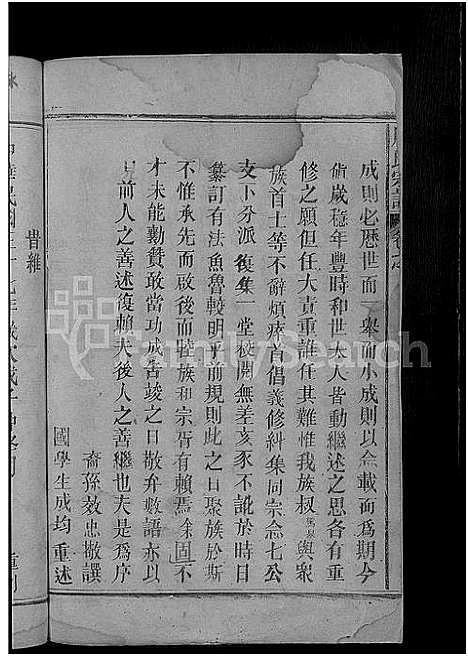 成則必歷世而一舉而小成則以念載而為期今
歲稔年豐時和世太人皆動繼述之思各有重
修之願但任大責重誰任其難惟我族叔萬泉與眾
族首士等不辭煩瘁首倡義修糾集同宗念七公
支下分派復集一堂校閱無差亥豕不訛於時日
纂訂有法魚魯較明乎前規則此之日聚族於斯
不惟承先而啟後而睦族和宗胥有賴焉余固不
才未能勷贊敢當功成告竣之日敬弁數語亦以
見前人之善述復賴夫後人之善繼也夫是為序
裔孫效忠撤譔
國學生成均重述
昔雜
FamilySearch